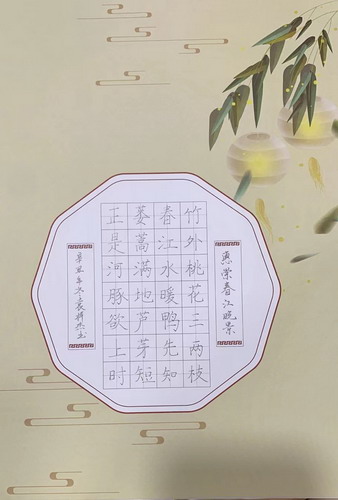 惠崇春江晚景
竹外桃花三两枝
春江水暖鸭先知
蒌蒿满地芦芽短
正是河豚欲上时
辛丑年冬袁书